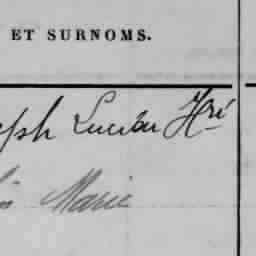 ET SURNOMS.
eph Lucien Hri
Marie